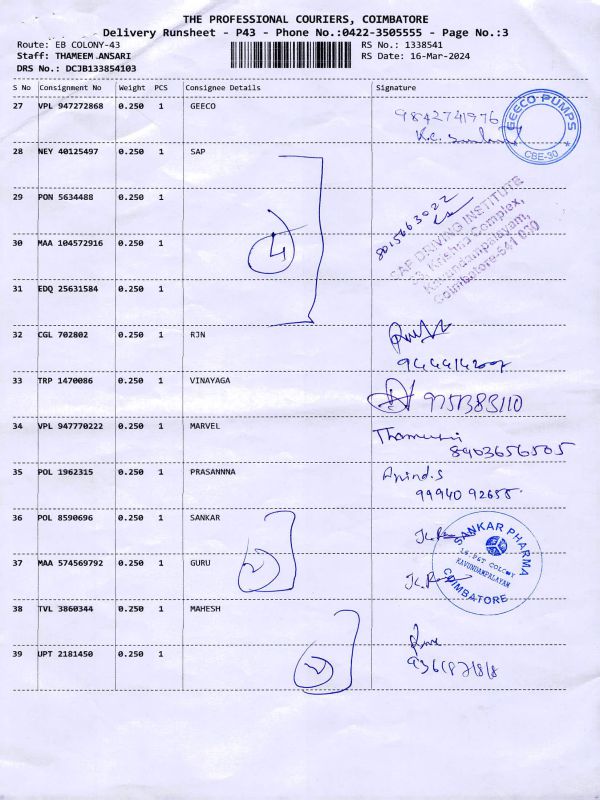 THE PROFESSIONAL COURIERS, COIMBATORE
Delivery Runsheet - P43 - Phone No.:0422-3505555 - Page No.:3
Route: EB COLONY-43 RS No.: 1338541
Staff: THAMEEM ANSARI RS Date: 16-Mar-2024
DRS No.: DCJB133854103
S No Consignment No Weight PCS Consignee Details Signature
27 VPL 947272868 0.250 1 GEECO
9842741976
GEECO PUMPS
CBE-30
28 NEY 40125497 0.250 1 SAP
29 PON 5634488 0.250 1
8015663022
DRIVING INSTITUTE
Krishna Complex,
Kavundampalayam,
Coimbatore-641 030
30 MAA 104572916 0.250 1
4
31 EDQ 25631584 0.250 1
32 CGL 702802 0.250 1 RJN
33 TRP 1470086 0.250 1 VINAYAGA
9751383110
34 VPL 947770222 0.250 1 MARVEL
8903656505
35 POL 1962315 0.250 1 PRASANNNA
99940 92655
36 POL 8590696 0.250 1 SANKAR
SANKAR PHARMA
KAVUNDAMPALAYAM
COIMBATORE
37 MAA 574569792 0.250 1 GURU
2
38 TVL 3860344 0.250 1 MAHESH
39 UPT 2181450 0.250 1
2